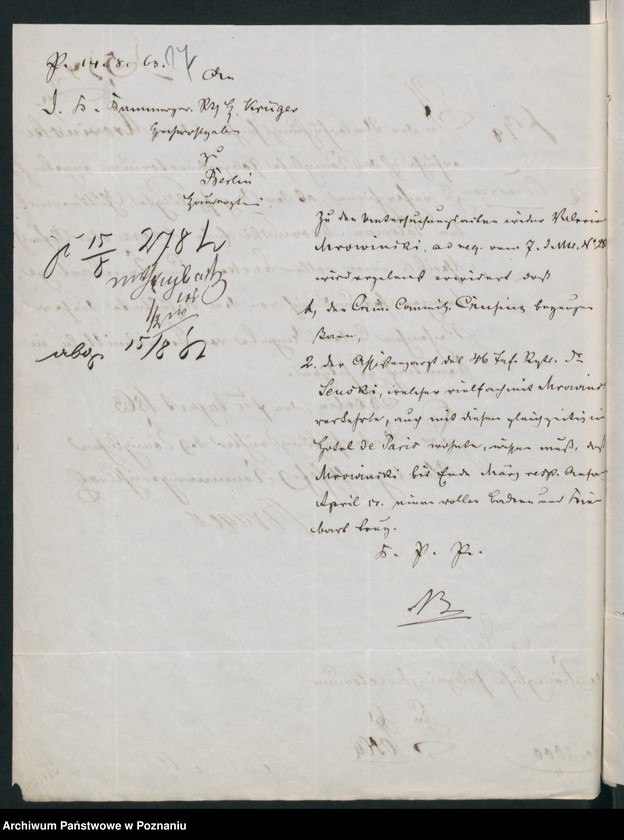 P. 14. 8. 63.
An
Kammerger. Rath H. Krüger
Hochwohlgeboren
zu
Berlin
Hausvogtei
15/8 278
15/8 63
Zu den Untersuchungsakten wider Valerian
Mrowinski, ad req. vom 7. d. Mts. No
wird ergebenst erwidert daß
1, der Crim. Commiss. bezeugen
kann,
2. der Assistenzarzt des 46 Inf. Rgts. Dr.
Senski, welcher vielfach mit Mrowinski
verkehrte, auch mit diesem gleichzeitig im
Hotel de Paris wohnte, wissen muß, daß
Mrowinski bis Ende März resp. Anfang
April cr. einen vollen Backen und Kinn-
bart trug.
K. P. Pr.